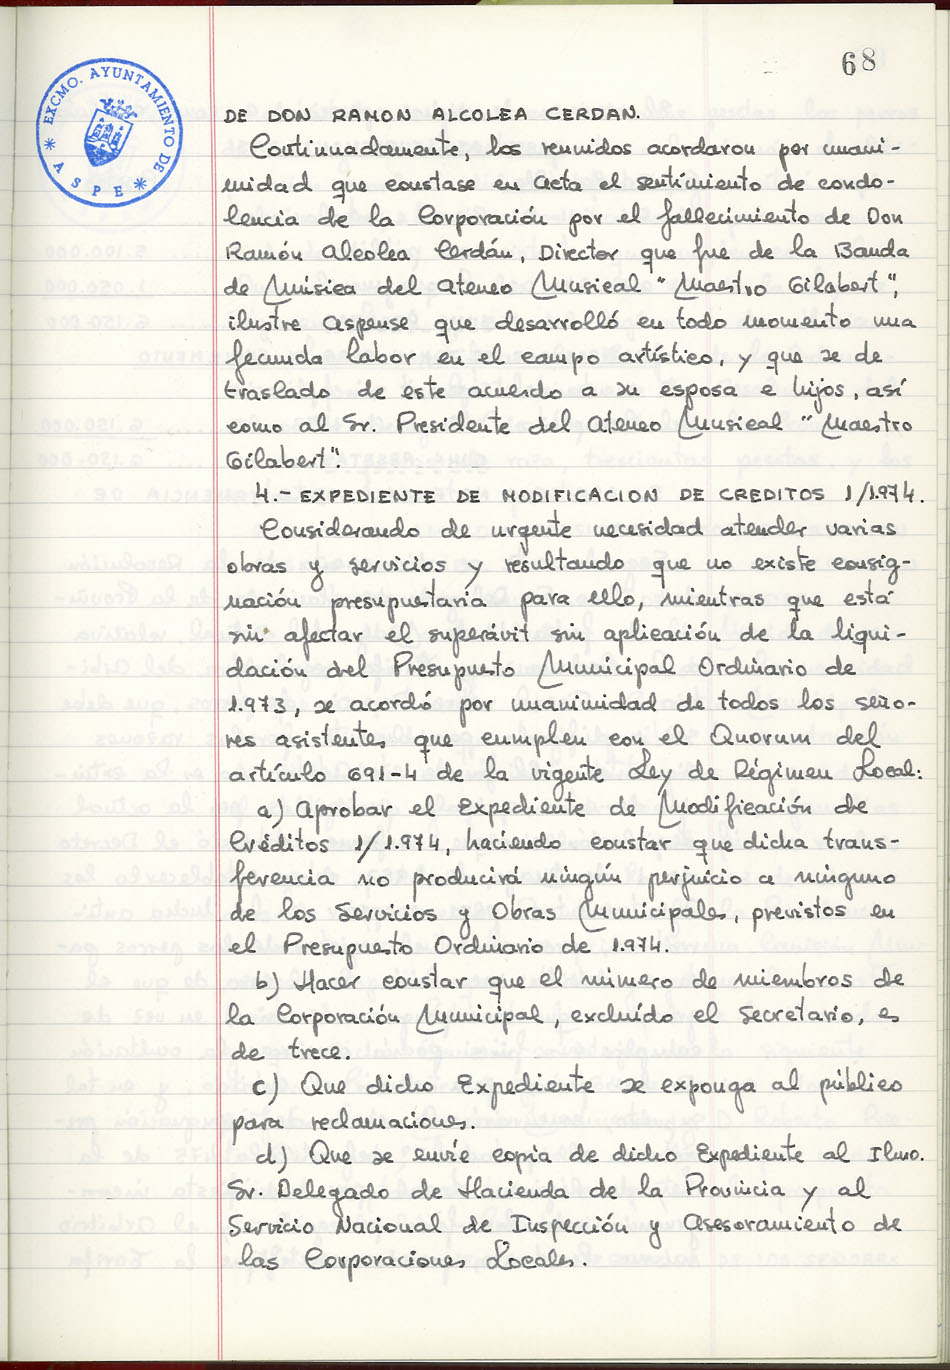 68
EXCMO. AYUNTAMIENTO DE
* ASPE *
DE DON RAMON ALCOLEA CERDAN.
Continuadamente, los reunidos acordaron por unani-
midad que constase en Acta el sentimiento de condo-
lencia de la Corporación por el fallecimiento de Don
Ramón Alcolea Cerdán, Director que fue de la Banda
de Música del Ateneo Musical "Maestro Gilabert",
ilustre Aspense que desarrolló en todo momento una
fecunda labor en el campo artístico, y que se de
traslado de este acuerdo a su esposa e hijos, así
como al Sr. Presidente del Ateneo Musical "Maestro
Gilabert".
4.- EXPEDIENTE DE MODIFICACION DE CREDITOS 1/1.974.
Considerando de urgente necesidad atender varias
obras y servicios y resultando que no existe consig-
nación presupuestaria para ello, mientras que está
sin afectar el superávit sin aplicación de la liqui-
dación del Presupuesto Municipal Ordinario de
1.973, se acordó por unanimidad de todos los seño-
res asistentes que cumplen con el Quorum del
artículo 691-4 de la vigente Ley de Régimen Local:
a) Aprobar el Expediente de Modificación de
Créditos 1/1.974, haciendo constar que dicha trans-
ferencia no producirá ningún perjuicio a ninguno
de los Servicios y Obras Municipales, previstos en
el Presupuesto Ordinario de 1.974.
b) Hacer constar que el número de miembros de
la Corporación Municipal, excluído el Secretario, es
de trece.
c) Que dicho Expediente se exponga al público
para reclamaciones.
d) Que se envíe copia de dicho Expediente al Ilmo.
Sr. Delegado de Hacienda de la Provincia y al
Servicio Nacional de Inspección y Asesoramiento de
las Corporaciones Locales.